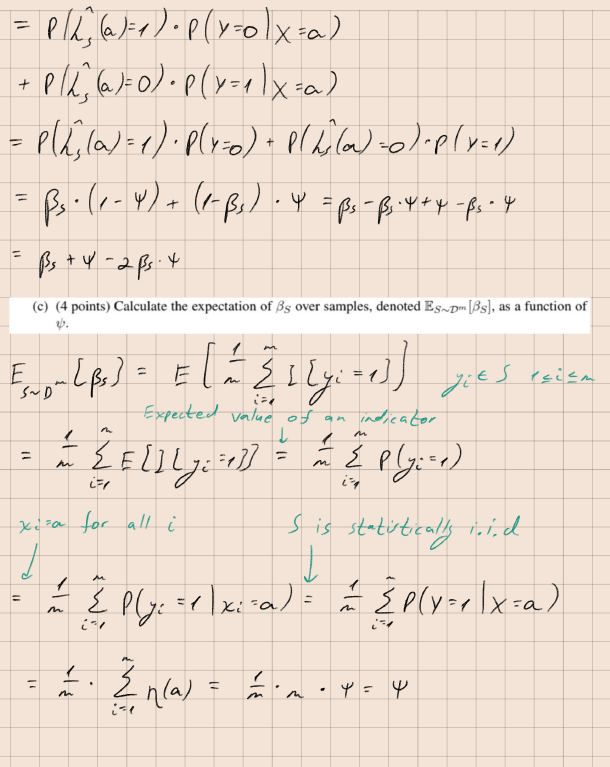 = P(ĥₛ(a)=1)·P(Y=0|X=a)
+ P(ĥₛ(a)=0)·P(Y=1|X=a)
= P(ĥₛ(a)=1)·P(Y=0) + P(ĥₛ(a)=0)·P(Y=1)
= βₛ·(1-ψ) + (1-βₛ)·ψ = βₛ-βₛ·ψ+ψ-βₛ·ψ
= βₛ+ψ-2βₛ·ψ
(c) (4 points) Calculate the expectation of β_S over samples, denoted 𝔼_{S∼D^m}[β_S], as a function of
ψ.
E_{S~D^m}[βₛ] = E[1/m Σ_{i=1}^{m} 𝟙[yᵢ=1]] yᵢ∈S 1≤i≤m
Expected value of an indicator
= 1/m Σ_{i=1}^{m} E[𝟙[yᵢ=1]] = 1/m Σ_{i=1}^{m} P(yᵢ=1)
xᵢ=a for all i S is statistically i.i.d
= 1/m Σ_{i=1}^{m} P(yᵢ=1|xᵢ=a) = 1/m Σ_{i=1}^{m} P(Y=1|X=a)
= 1/m · Σ_{i=1}^{m} η(a) = 1/m · m · ψ = ψ